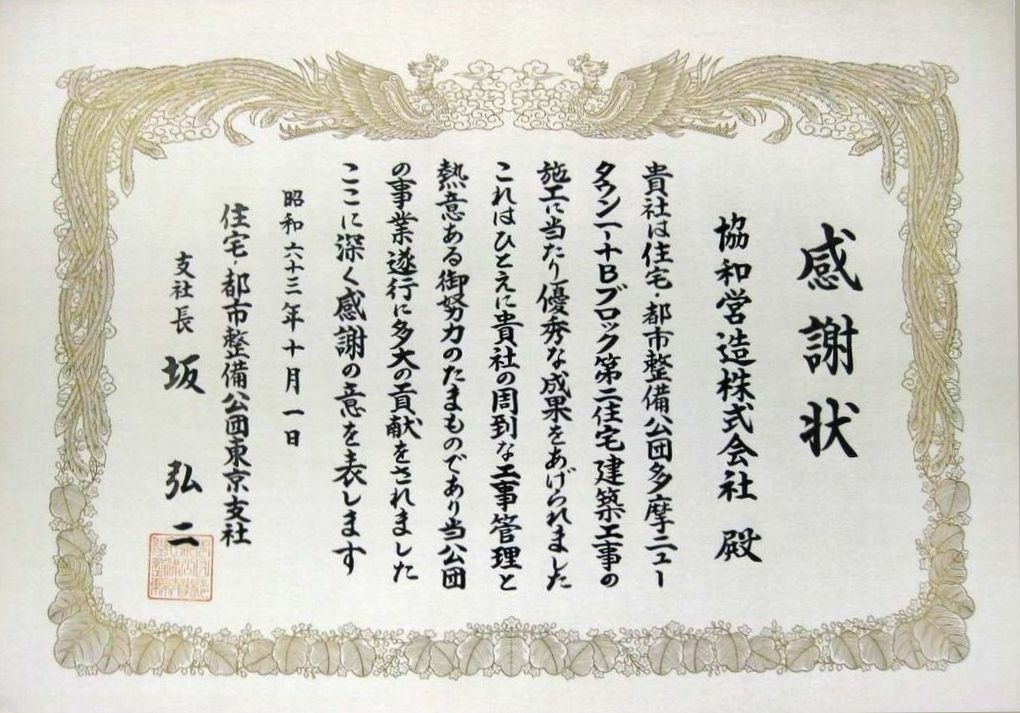 感謝状
協和営造株式会社 殿
貴社は住宅・都市整備公団多摩ニュー
タウン一・十Bブロック第二住宅建築工事の
施工に当たり優秀な成果をあげられました
これはひとえに貴社の周到な工事管理と
熱意ある御努力のたまものであり当公団
の事業遂行に多大の貢献をされました
ここに深く感謝の意を表します
昭和六十三年十月一日
住宅・都市整備公団東京支社
支社長 坂 弘二